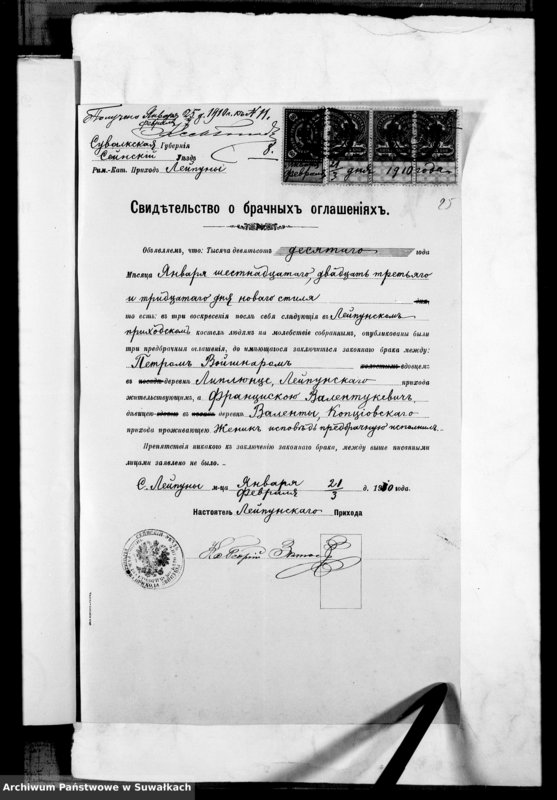 Получено Января 25 д. 1910 г. к. № 11.
февраля
Сувалкская Губернія
Сейнскій Уѣздъ 8.
Рим.-Кат. Приходъ Лейпуны
февраля 21/3 дня 1910 года.
25
Свидѣтельство о брачныхъ оглашеніяхъ.
Объявляемъ, что: Тысяча девятьсотъ десятаго года
Мѣсяца Января шестнадцатаго, двадцать третьяго
и тридцатаго дня новаго стиля
то есть: въ три воскресенія послѣ себя слѣдующія въ Лейпунскомъ
приходскомъ костелѣ людямъ на молебствіе собраннымъ, опубликованы были
три предбрачныя оглашенія, до имѣющагося заключиться законнаго брака между:
Петромъ Войшнаромъ холостымъ вдовцемъ:
въ деревнѣ Липлюнце, Лейпунскаго прихода
жительствующимъ, а Францискою Валентукевичъ,
дѣвицею вдовою въ деревнѣ Валенты, Копціовскаго
прихода проживающею. Женихъ исповѣдь предбрачную исполнилъ.
Препятствія никакого къ заключенію законнаго брака, между выше писанными
лицами заявлено не было.
С. Лейпуны м-ца Января 21 д. 1910 года.
февраля 3
Настоятель Лейпунскаго Прихода
Archiwum Państwowe w Suwałkach